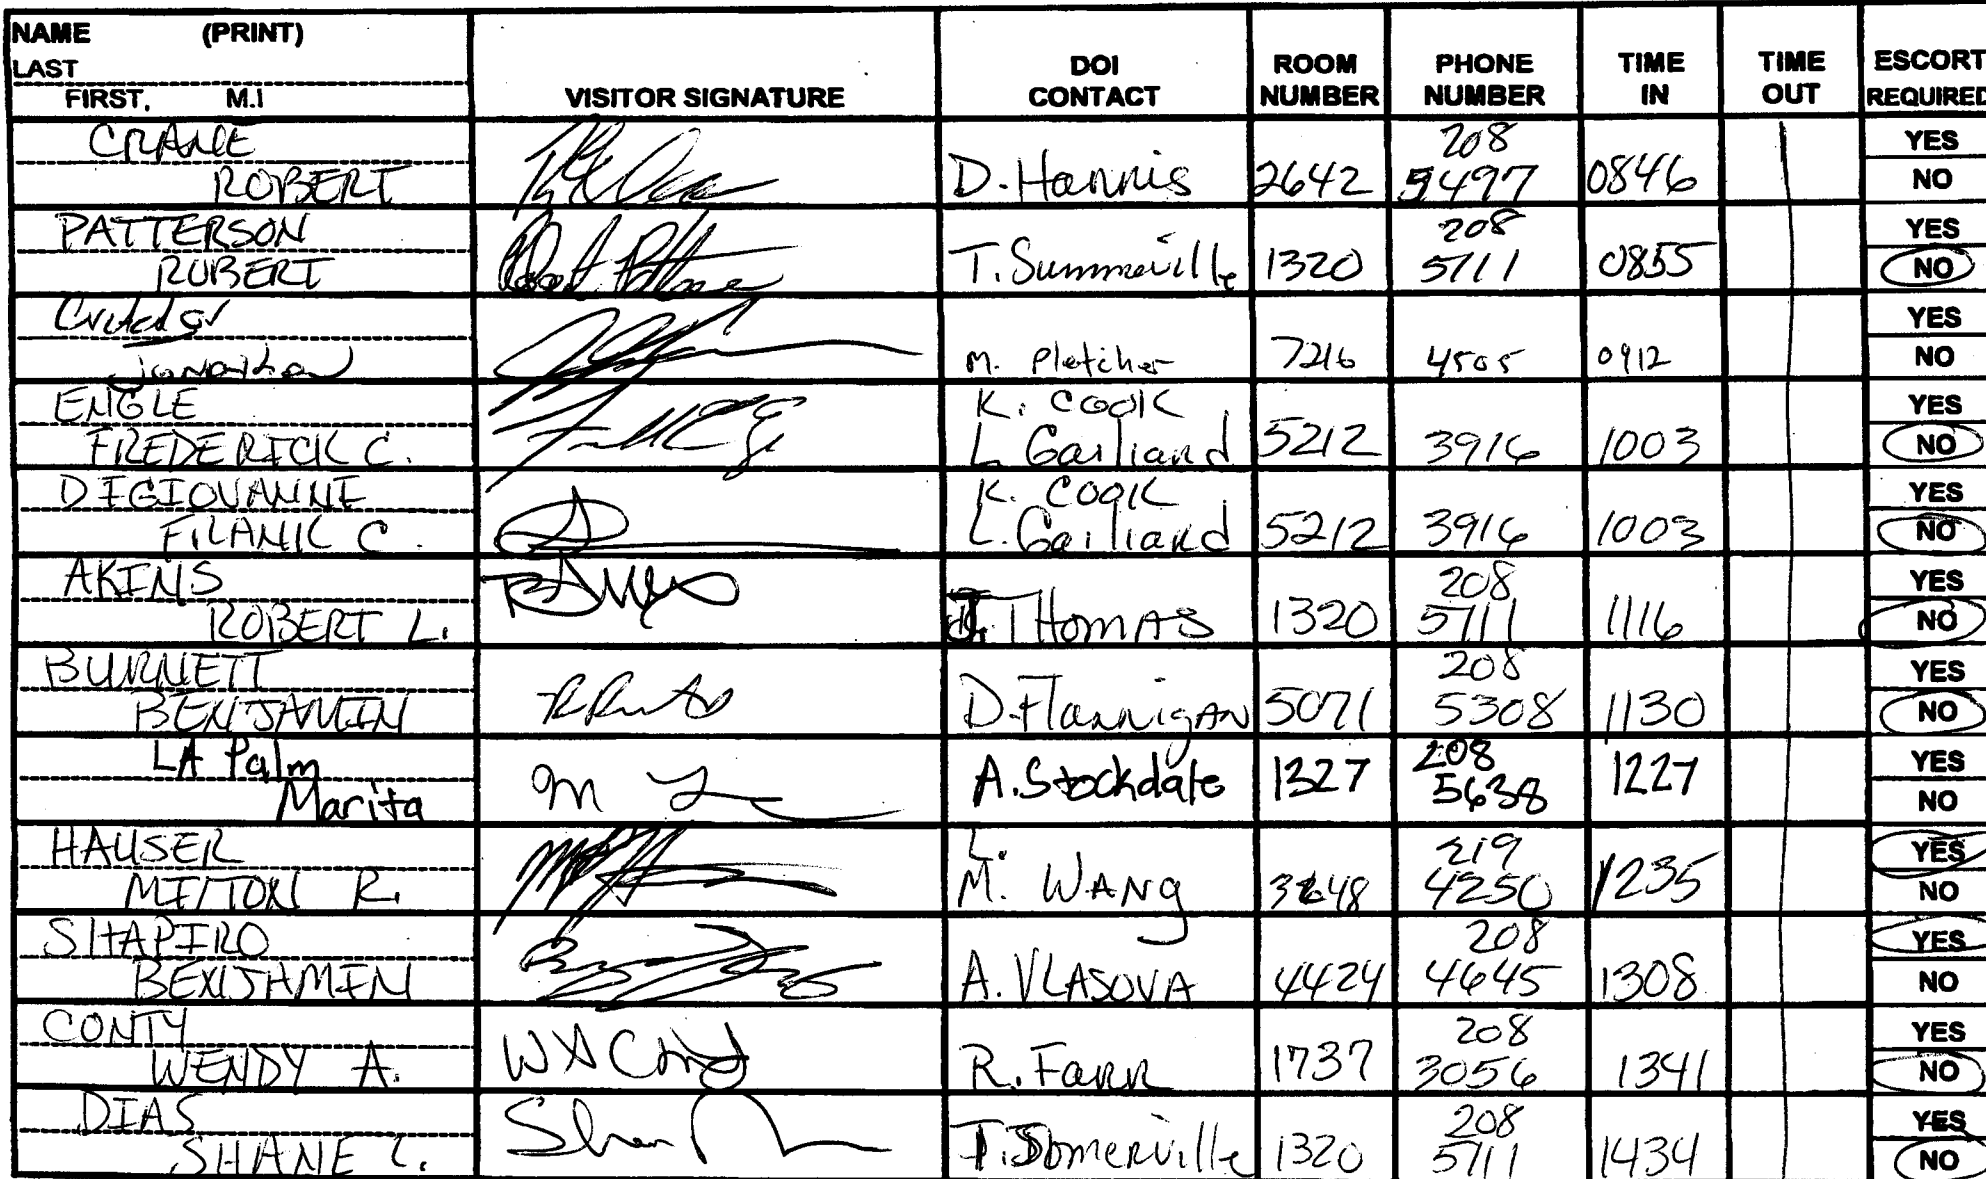 NAME (PRINT)
LAST
FIRST, M.I
VISITOR SIGNATURE
DOI CONTACT
ROOM NUMBER
PHONE NUMBER
TIME IN
TIME OUT
ESCORT REQUIRED
CRANE
ROBERT
D. Hannis
2642
208
5497
0846
YES
NO
PATTERSON
ROBERT
T. Summerville
1320
208
5711
0855
YES
NO
Jonathan
M. Pletcher
7216
4505
0912
YES
NO
ENGLE
FREDERICK C.
K. COOK
L. Gailiard
5212
3916
1003
YES
NO
DIGIOVANNE
FRANK C.
K. COOK
L. Gailiard
5212
3916
1003
YES
NO
AKINS
ROBERT L.
THOMAS
1320
208
5711
1116
YES
NO
BURNETT
BENJAMIN
D. Flannigan
5071
208
5308
1130
YES
NO
LA Palm
Marita
A. Stockdale
1327
208
5638
1227
YES
NO
HAUSER
MILTON R.
L.
M. WANG
219
4250
1235
YES
NO
SHAPIRO
BENJAMIN
A. VLASOVA
4424
208
4645
1308
YES
NO
CONTY
WENDY A.
R. Farr
1737
208
3056
1341
YES
NO
DIAS
SHANE C.
T. Somerville
1320
208
5711
1434
YES
NO